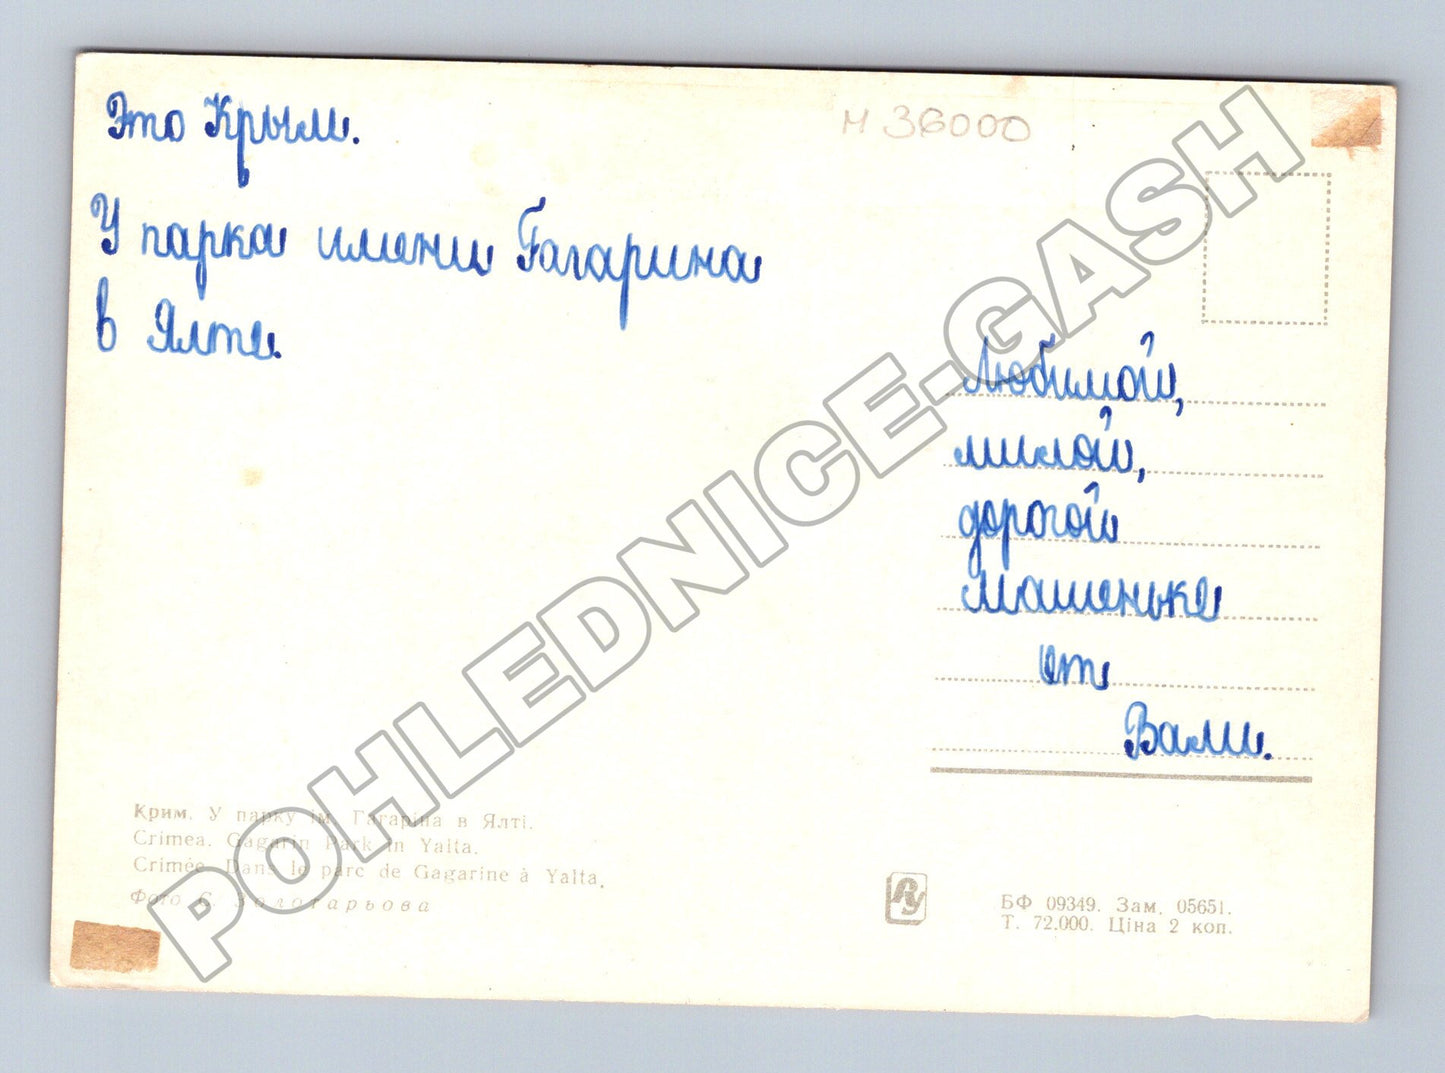 Это Крым.
У парка имени Гагарина
в Ялте.
М 36000
Любимой,
милой,
дорогой
Машеньке
от
Вали.
Крим. У парку ім. Гагаріна в Ялті.
Crimea. Gagarin Park in Yalta.
Crimée. Dans le parc de Gagarine à Yalta.
Фото С. Золотарьова
РУ
БФ 09349. Зам. 05651.
Т. 72.000. Ціна 2 коп.
POHLEDNICE-GASH